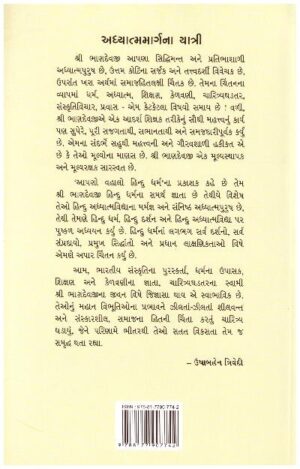 અધ્યાત્મમાર્ગના યાત્રી
શ્રી ભાણદેવજી આપણા સિદ્ધિમન્ત અને પ્રતિભાશાળી
અધ્યાત્મપુરુષ છે, ઉત્તમ કોટિના સર્જક અને તત્ત્વદર્શી વિવેચક છે.
ઉપરાંત ખરા અર્થમાં સમાજહિતલક્ષી ચિંતક છે. તેમના ચિંતનના
વ્યાપમાં ધર્મ, અધ્યાત્મ, શિક્ષણ, કેળવણી, ચારિત્ર્યઘડતર,
સંસ્કૃતિવિચાર, પ્રવાસ - એમ કેટકેટલા વિષયો સમાય છે ! વળી,
શ્રી ભાણદેવજીએ એક આદર્શ શિક્ષક તરીકેનું સૌથી મહત્ત્વનું કાર્ય
પણ સુપેરે, પૂરી સજગતાથી, સભાનતાથી અને સમજદારીપૂર્વક કર્યું
છે. એમના સંદર્ભે સહુથી મહત્ત્વની અને ગૌરવશાળી હકીકત એ
છે કે તેઓ મૂલ્યોના માણસ છે. શ્રી ભાણદેવજી એક મૂલ્યસ્થાપક
અને મૂલ્યરક્ષક સારસ્વત છે.
'આપણો વહાલો હિન્દુ ધર્મ'ના પ્રકાશક કહે છે તેમ
શ્રી ભાણદેવજી હિન્દુ ધર્મના સમર્થ જ્ઞાતા છે તેથીયે વિશેષ
તેઓ હિન્દુ અધ્યાત્મવિદ્યાના મર્મજ્ઞ અને સંનિષ્ઠ અધ્યાત્મપુરુષ છે.
તેથી તેમણે હિન્દુ ધર્મ, હિન્દુ દર્શન અને હિન્દુ અધ્યાત્મવિદ્યા પર
પુષ્કળ અધ્યયન કર્યું છે. હિન્દુ ધર્મનાં લગભગ સર્વ દર્શનો, સર્વ
સંપ્રદાયો, પ્રમુખ સિદ્ધાંતો અને પ્રધાન લાક્ષણિકતાઓ વિષે
એમણે અપાર ચિંતન કર્યું છે.
આમ, ભારતીય સંસ્કૃતિના પુરસ્કર્તા, હિન્દુ ધર્મના ઉપાસક,
શિક્ષણ અને કેળવણીના જ્ઞાતા, ચારિત્ર્યઘડતરના સ્વામી
શ્રી ભાણદેવજીના જીવન વિષે જિજ્ઞાસા થાય એ સ્વાભાવિક છે.
તેઓનું મહાન વિભૂતિઓના પ્રભાવને ઝીલતાં-ઝીલતાં શીલવન્ત
અને સંસ્કારશીલ, સમાજના હિતની ચિંતા કરતું ચારિત્ર્ય
ઘડાયું, જેને પરિણામે ભીતરથી તેઓ સતત વિકસતા તેમ જ
સમૃદ્ધ થતા રહ્યા.
– ઉષાબહેન ત્રિવેદી
ISBN : 978-81-7790 774 2
9 788177 907742